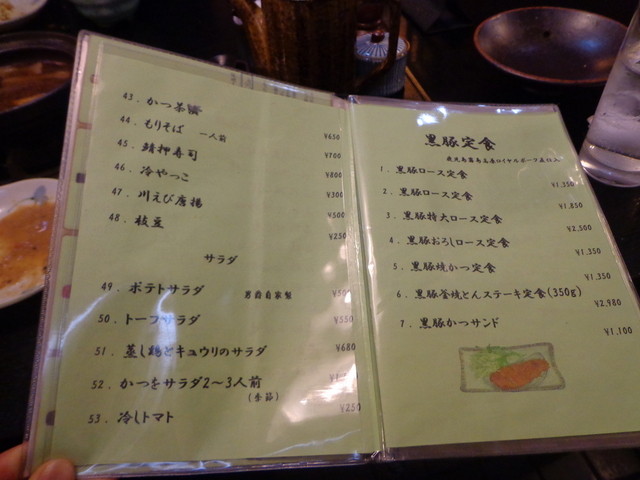 43. かつ茶漬 ¥650
44. もりそば 一人前 ¥700
45. 鯖押寿司 ¥800
46. 冷やっこ ¥300
47. 川えび唐揚 ¥500
48. 枝豆 ¥250
サラダ
49. ポテトサラダ 男爵自家製
50. トーフサラダ ¥350
51. 蒸し鶏とキュウリのサラダ ¥680
52. かつをサラダ2〜3人前
(季節)
53. 冷しトマト ¥250
黒豚定食
1. 黒豚ロース定食 ¥1,350
2. 黒豚ロース定食 ¥1,850
3. 黒豚特大ロース定食 ¥2,500
4. 黒豚おろしロース定食 ¥1,350
5. 黒豚焼かつ定食 ¥1,350
6. 黒豚釜焼とんステーキ定食(350g) ¥2,980
7. 黒豚かつサンド ¥1,100